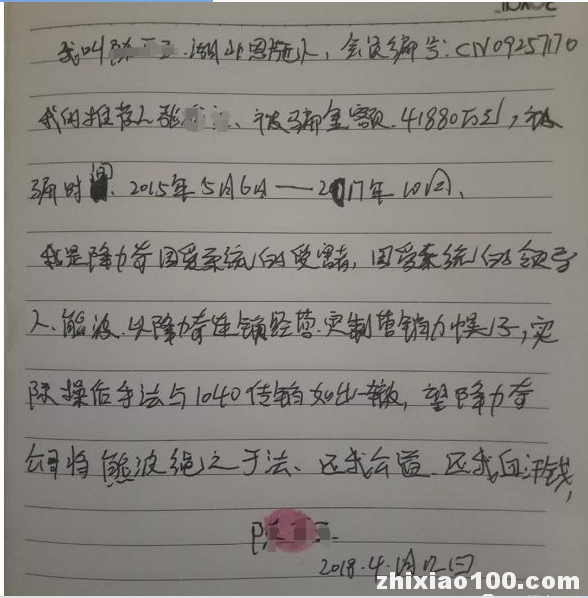 我叫陈 湖北恩施人，会员编号：CN09257170
我的推荐人张 、被骗金额41880百元，被
骗时间、2015年5月6日——2017年10月、
我是隆力奇因爱系统的受害者，因爱系统的领导
人、熊波以隆力奇连锁经营定制营销为幌子，实
际操作手法与1040传销如出一辙，望隆力奇
公司将熊波绳之于法、还我公道 还我血汗钱，
陈
2018.4.1月12日
zhixiao100.com